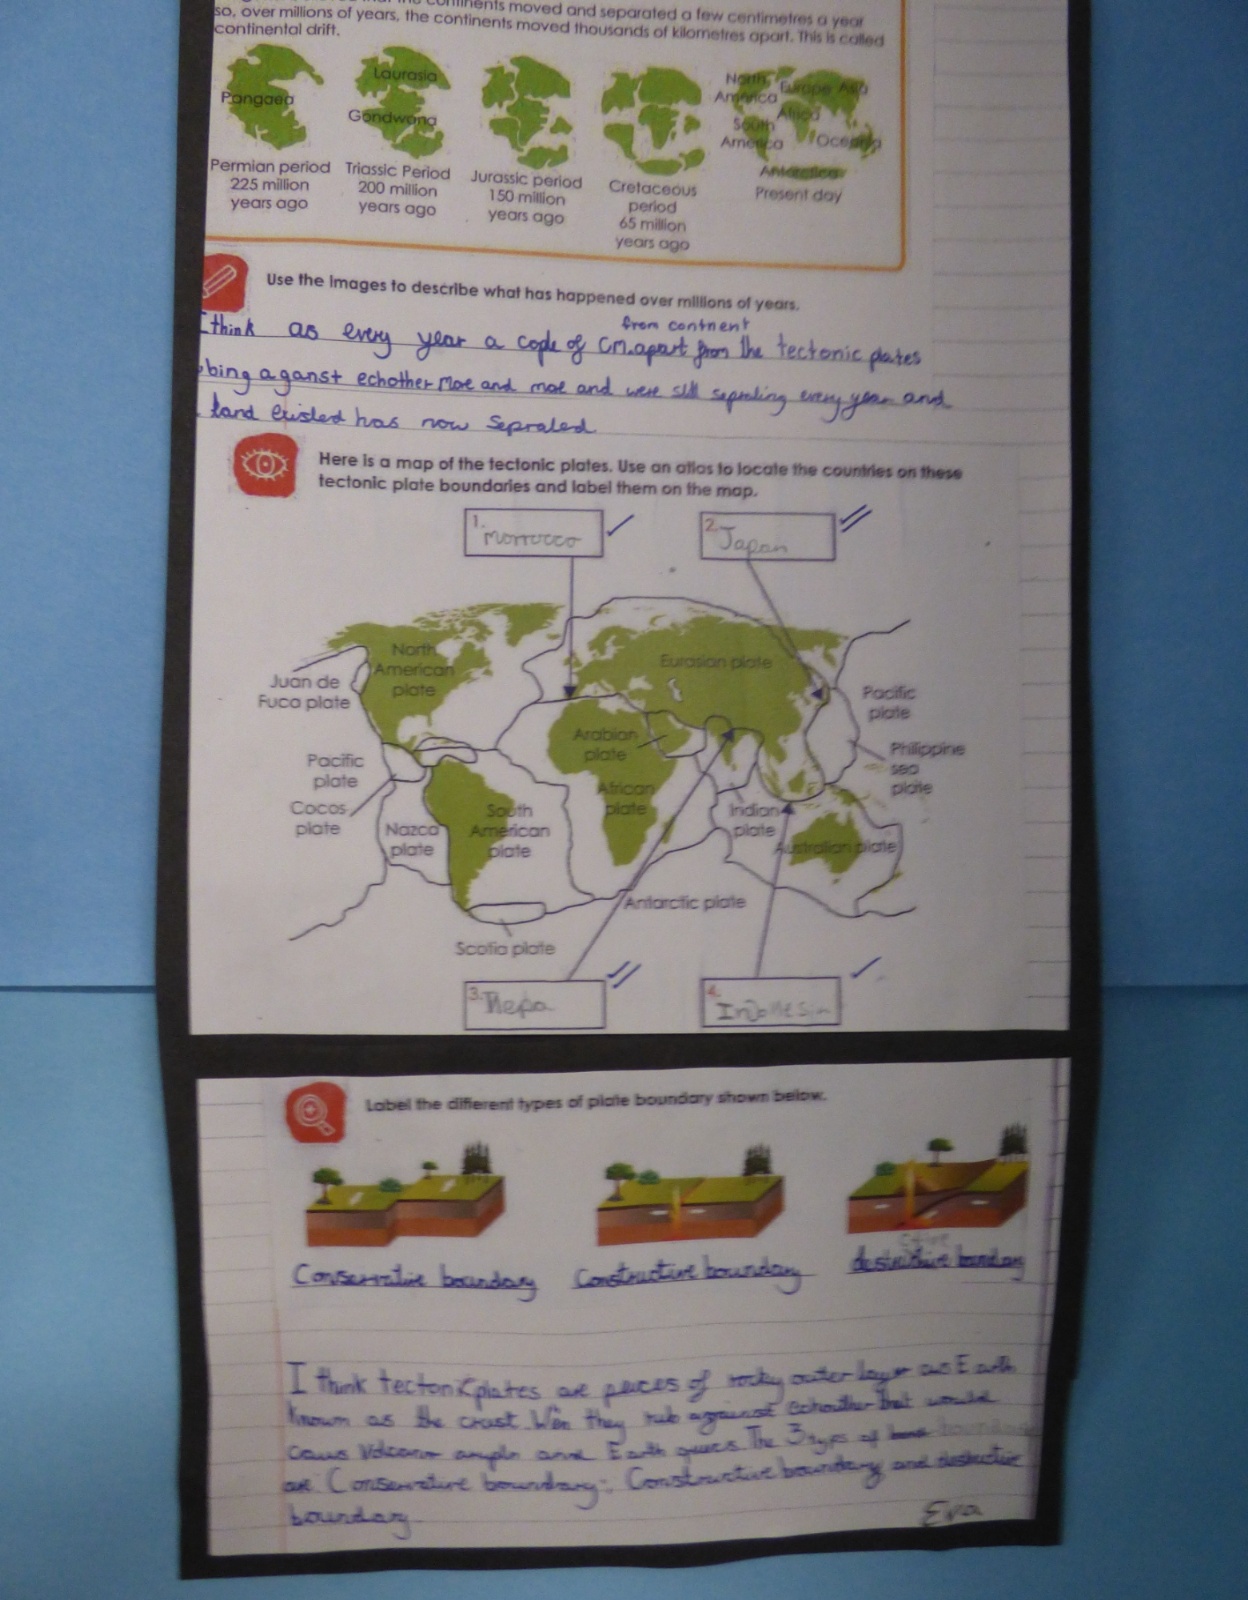 continents moved and separated a few centimetres a year
so, over millions of years, the continents moved thousands of kilometres apart. This is called
continental drift.
Pangaea
Laurasia
Gondwana
North America
Europe
Asia
Africa
South America
Oceania
Antarctica
Permian period
225 million
years ago
Triassic Period
200 million
years ago
Jurassic period
150 million
years ago
Cretaceous
period
65 million
years ago
Present day
Use the images to describe what has happened over millions of years.
from contnent
think as every year a cople of CM.apart from the tectonic plates
bing aganst echother more and more and were still seprating every year and
land existed has now Seprated
Here is a map of the tectonic plates. Use an atlas to locate the countries on these
tectonic plate boundaries and label them on the map.
1. Morrocco
2. Japan
North
American
plate
Eurasian plate
Juan de
Fuca plate
Pacific
plate
Arabian
plate
Philippine
sea
plate
Pacific
plate
Cocos
plate
African
plate
Nazca
plate
South
American
plate
Indian
plate
Australian plate
Antarctic plate
Scotia plate
3.
4. Indonesia
Label the different types of plate boundary shown below.
Conservative boundary
Constructive boundary
destructive boundary
I think tectonic plates are peices of rocky outer layer as Earth
known as the crust. Wen they rub against echouther that would
caus Volcano and Earth The 3 typs of
are Conservative boundary; Constructive boundary and destructive
boundary.
Eva